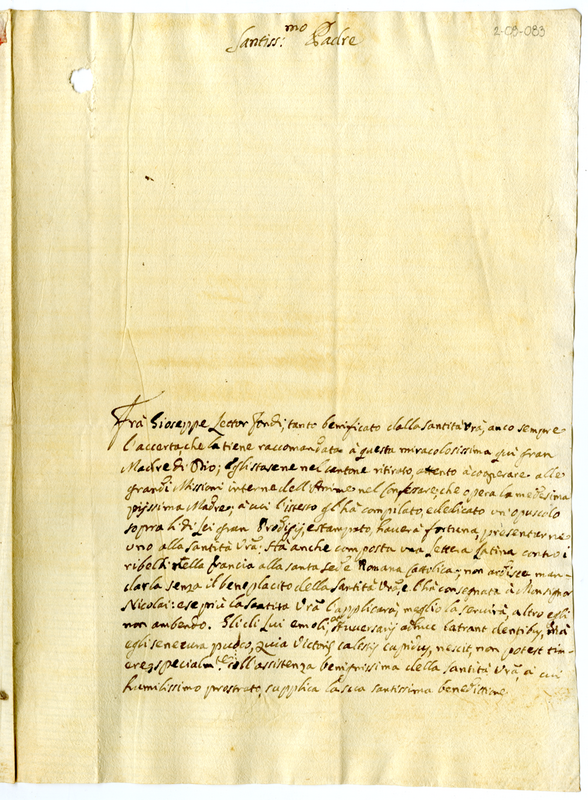 2-09-083
Santiss:mo Padre
Frà Gioseppe Lector Fondi, tanto benificato dalla Santità Vrà, anco sempre
l'accerta, che la tiene raccomandata à questa miracolosissima qui gran
Madre di Dio; Egli stasene nel cantone ritirato, attento à cooperare alle
grandi Missioni interne dell'Anime nel Confessare, che opera la medesima
pijssima Madre; à cui l'istesso gl'hà compilato, e dedicato un'opuscolo
sopra li di Lei gran Prodigij, e stampato, haverà fortuna, presentarne
uno alla Santità Vrà. Hà anche composta una Lettera latina contro i
ribelli nella francia alla santa sede Romana Cattolica; non ardisce man-
darla senza il beneplacito della Santità Vrà, e l'hà consegnata à Monsignor
Nicolai: e se più la Santità Vrà l'applicarà, meglio la servirà, altro egli
non ambendo. Gli di lui emoli, Adversarij adhuc latrant dentibus, mà
egli se ne cura puoco, quia Victoris calessis cupidus, nescit, non potest tim-
ere, specialmte coll'assistenza benignissima della Santità Vrà, à cui
humilissimo prostrato, supplica la sua santissima benedittione